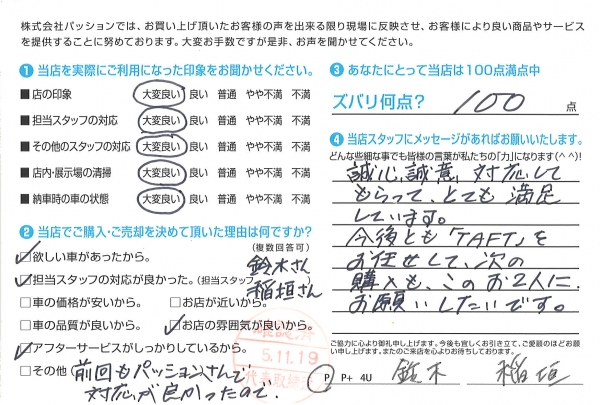 株式会社パッションでは、お買い上げ頂いたお客様の声を出来る限り現場に反映させ、お客様により良い商品やサービス
を提供することに努めております。大変お手数ですが是非、お声を聞かせてください。
❶ 当店を実際にご利用になった印象をお聞かせください。
■ 店の印象 大変良い 良い 普通 やや不満 不満
■ 担当スタッフの対応 大変良い 良い 普通 やや不満 不満
■ その他のスタッフの対応 大変良い 良い 普通 やや不満 不満
■ 店内・展示場の清掃 大変良い 良い 普通 やや不満 不満
■ 納車時の車の状態 大変良い 良い 普通 やや不満 不満
❷ 当店でご購入・ご売却を決めて頂いた理由は何ですか?
(複数回答可)
□欲しい車があったから。 鈴木さん
□担当スタッフの対応が良かった。(担当スタッフ 稲垣さん
□車の価格が安いから。 □お店が近いから。
□車の品質が良いから。 □お店の雰囲気が良いから。
□アフターサービスがしっかりしているから。
□その他( 前回もパッションさんで
対応が良かったので。
5.11.19
❸ あなたにとって当店は100点満点中
ズバリ何点? 100 点
❹ 当店スタッフにメッセージがあればお願いいたします。
どんな些細な事でも皆様の言葉が私たちの「力」になります(^^)!
誠心誠意、対応して
もらって、とても満足
しています。
今後とも「TAFT」を
お任せして、次の
購入も、このお2人に
お願いしたいです。
ご協力に心より御礼申し上げます。今後も宜しくお引き立て、ご愛顧のほどお願
い申し上げます。またのご来店を心よりお待ちしております。
P P+ 4U 鈴木 稲垣